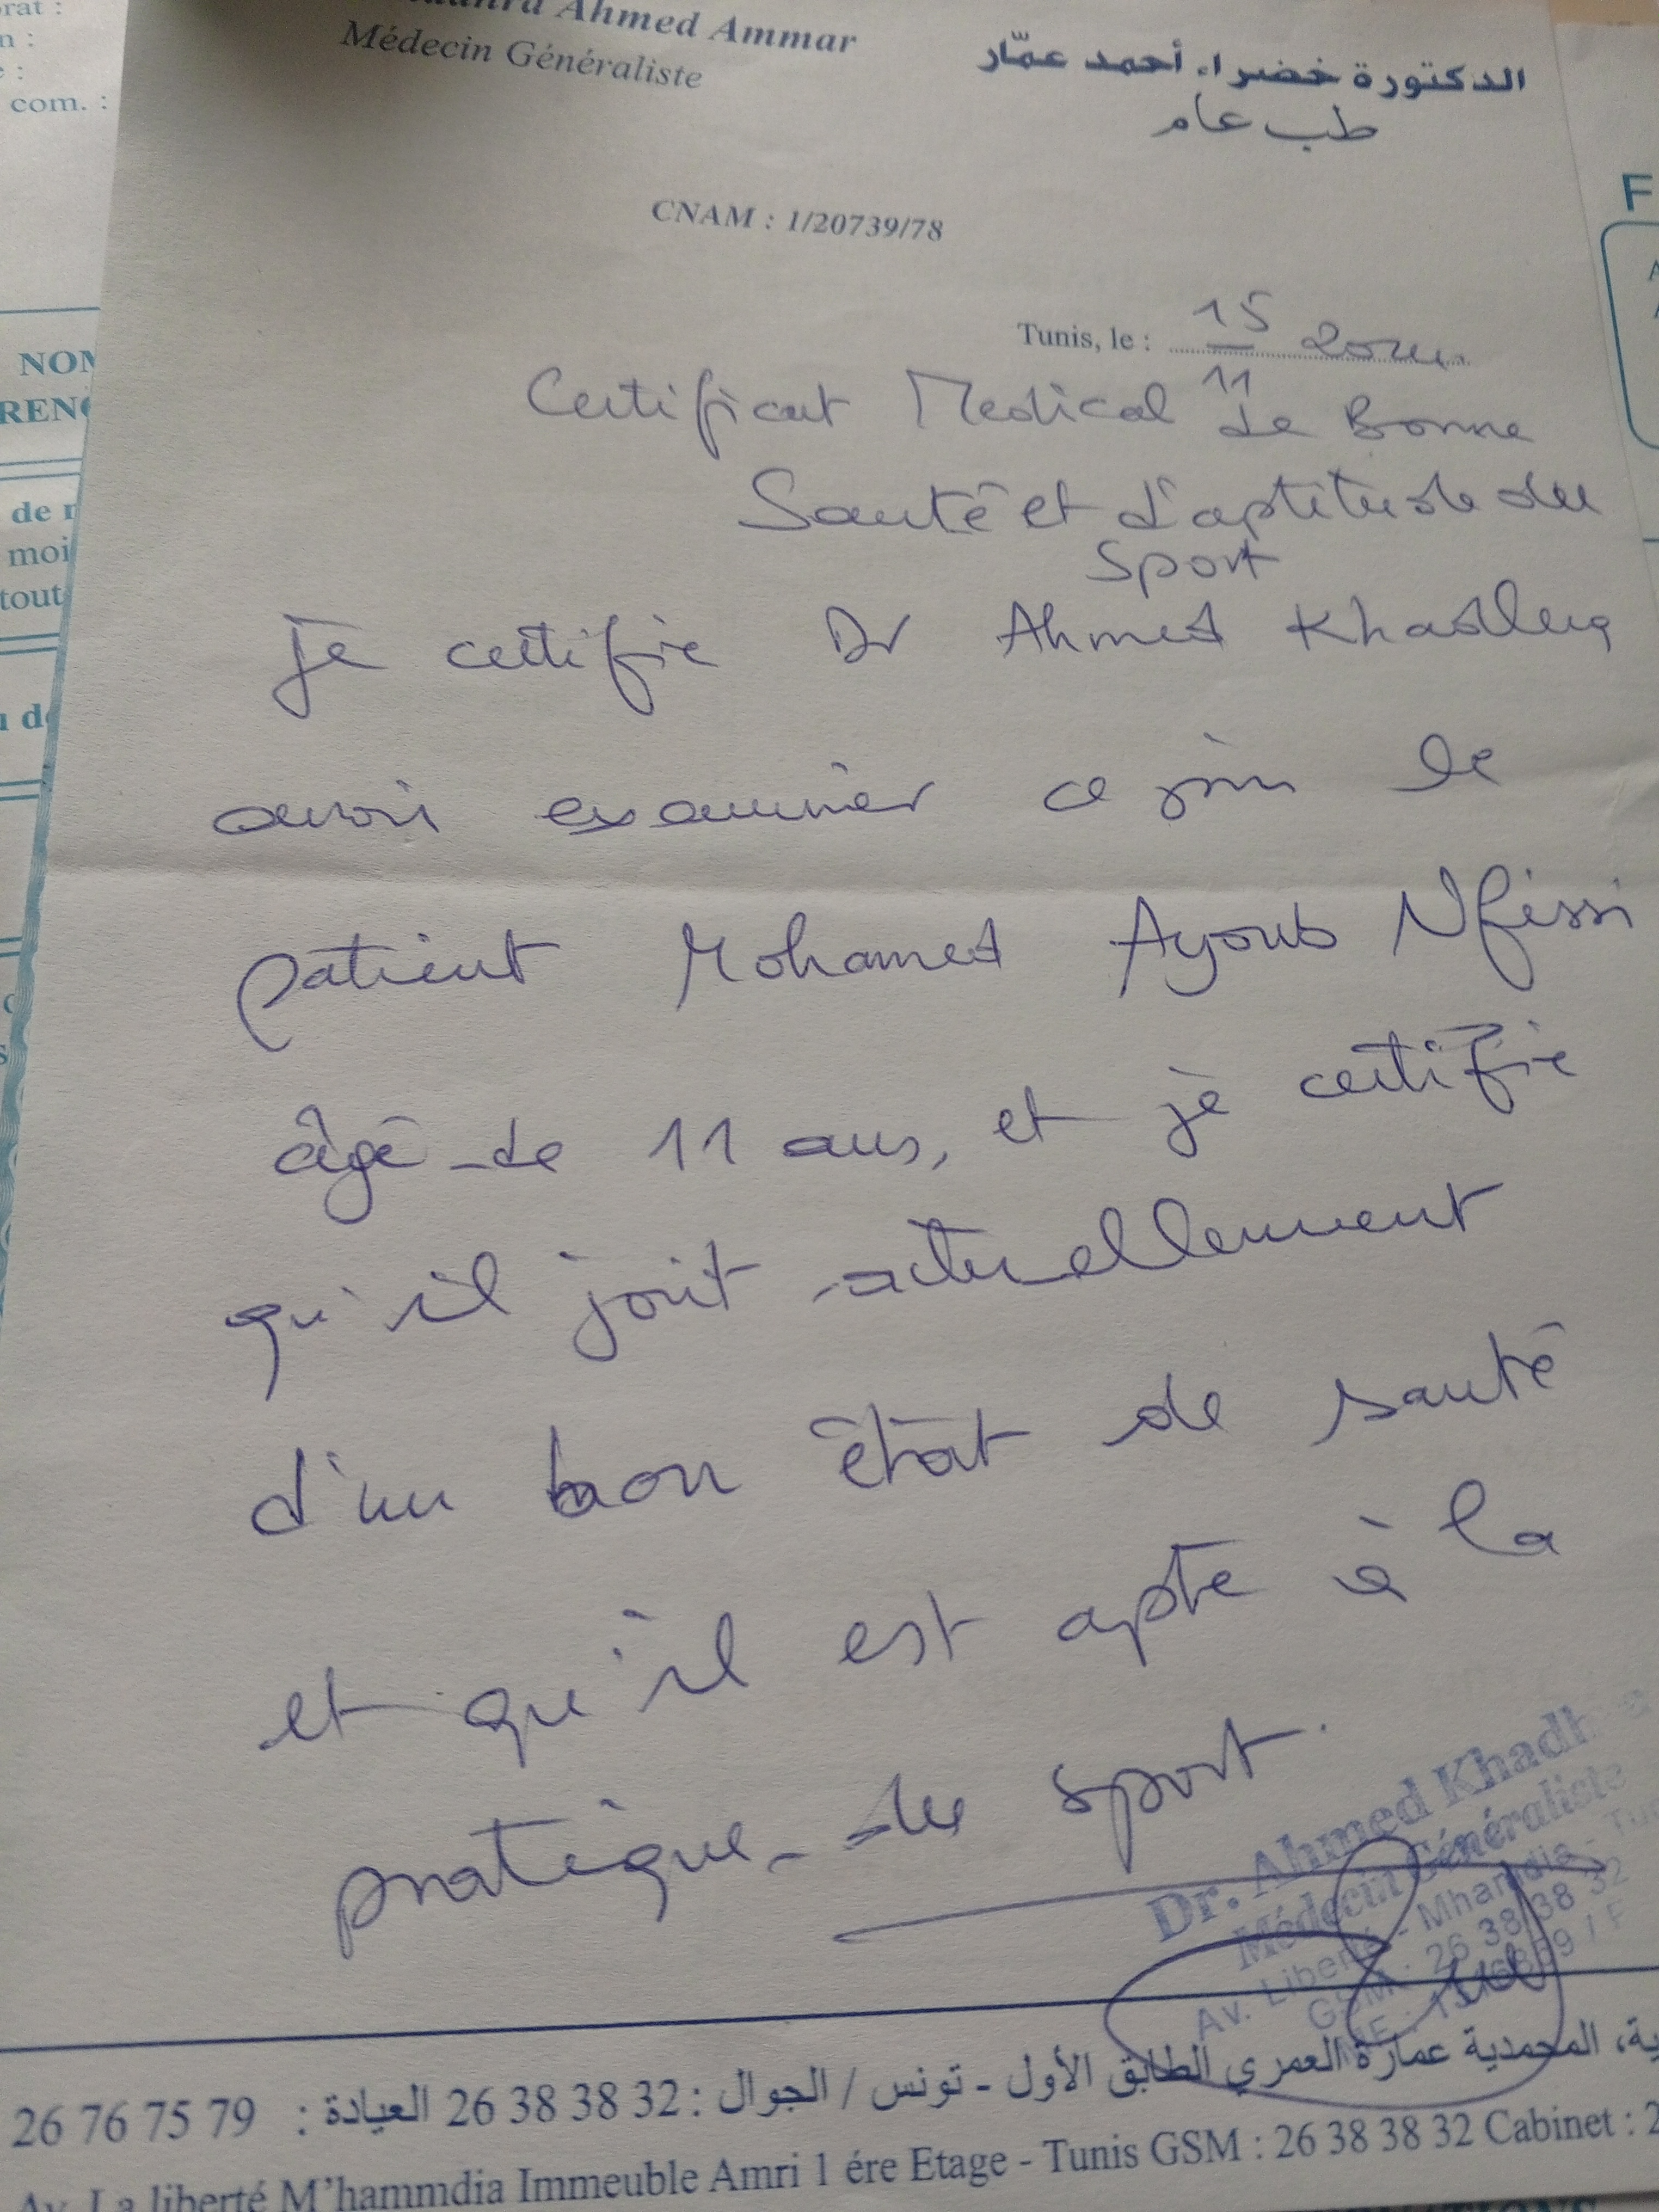 Ahmed Ammar
Médecin Généraliste
الدكتورة خضراء أحمد عمّار
طب عام
CNAM : 1/20739/78
Tunis, le : 15 11
Certificat Medical de Bonne
Santé et d'aptitude du
sport
je certifie Dr Ahmed
avoir examiner ce jour le
patient Mohamed Ayoub Nfissi
âgé de 11 ans, et je certifie
qu'il jouit actuellement
d'un bon état de santé
et qu'il est apte à la
pratique du sport.
Dr. Ahmed
Médecin Généraliste
Av. Liberté - Mhamdia -
GSM : 26 38 38 32
المحمدية عمارة العمري الطابق الأول - تونس / الجوال : 32 38 38 26 العيادة : 79 75 76 26
Av. La liberté M'hammdia Immeuble Amri 1 ére Etage - Tunis GSM : 26 38 38 32 Cabinet :
com. :
de
moi
tout